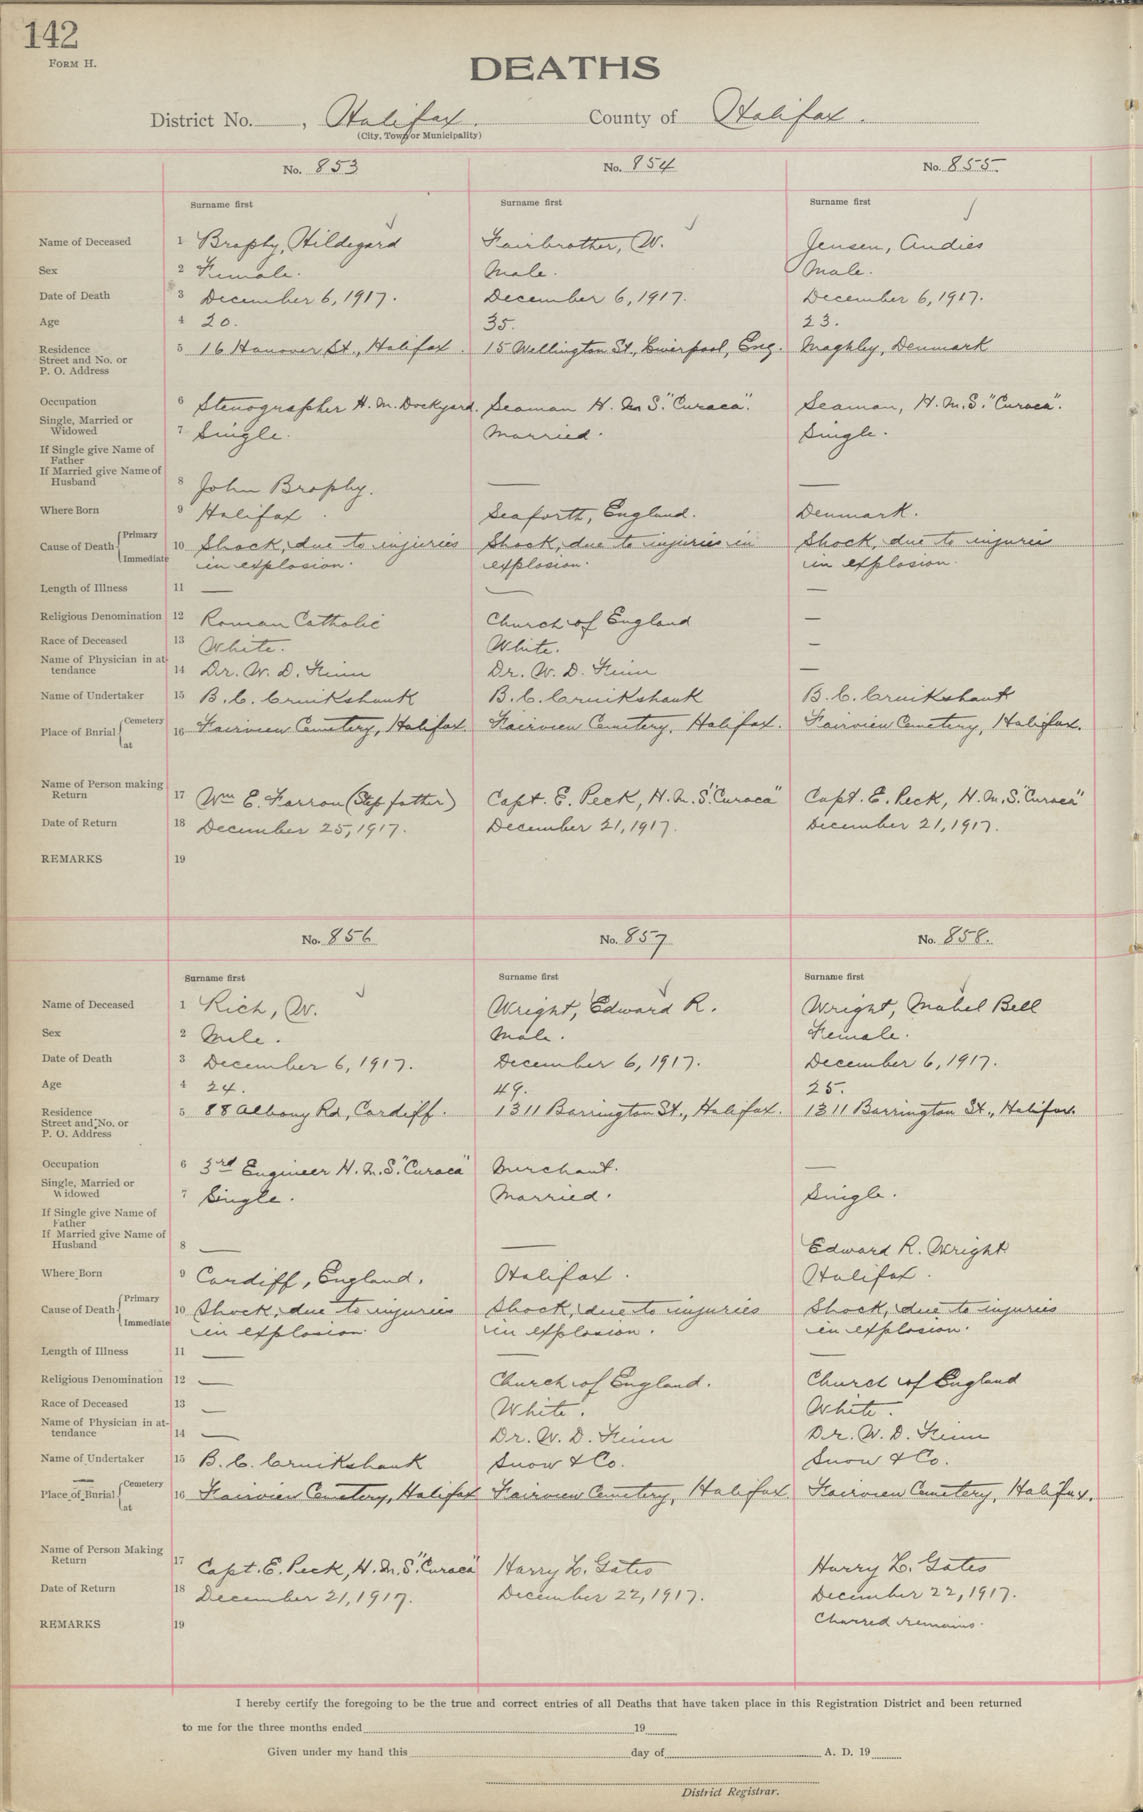 142
FORM H.
DEATHS
District No. , Halifax.
(City, Town or Municipality)
County of Halifax.
No. 853
No. 854
No. 855.
Surname first
Surname first
Surname first
Name of Deceased 1 Brophy, Hildegard
Fairbrother, W.
Jensen, Andies
Sex 2 Female.
Male.
Male.
Date of Death 3 December 6, 1917.
December 6, 1917.
December 6, 1917.
Age 4 20.
35.
23.
Residence
Street and No. or
P. O. Address
5 16 Hanover St., Halifax.
15 Wellington St., Liverpool, Eng.
Denmark
Occupation 6 Stenographer H. M. Dockyard.
Seaman H. M. S. "Curaca".
Seaman, H. M. S. "Curaca".
Single, Married or
Widowed 7 Single.
Married.
Single.
If Single give Name of
Father
If Married give Name of
Husband 8 John Brophy.
—
—
Where Born 9 Halifax.
Seaforth, England.
Denmark.
Cause of Death { Primary
Immediate
10 Shock, due to injuries
in explosion.
Shock, due to injuries in
explosion.
Shock, due to injuries
in explosion.
Length of Illness 11 —
—
—
Religious Denomination 12 Roman Catholic
Church of England
—
Race of Deceased 13 White.
White.
—
Name of Physician in at-
tendance 14 Dr. W. D. Finn
Dr. W. D. Finn
—
Name of Undertaker 15 B. C. Cruikshank
B. C. Cruikshank
B. C. Cruikshank
Place of Burial { Cemetery
at
16 Fairview Cemetery, Halifax.
Fairview Cemetery, Halifax.
Fairview Cemetery, Halifax.
Name of Person making
Return 17 Wm E. Farron (Step father)
Capt. E. Peck, H. M. S. "Curaca"
Capt. E. Peck, H. M. S. "Curaca"
Date of Return 18 December 25, 1917.
December 21, 1917.
December 21, 1917.
REMARKS 19
No. 856
No. 857
No. 858.
Surname first
Surname first
Surname first
Name of Deceased 1 Rich, W.
Wright, Edward R.
Wright, Mabel Bell
Sex 2 Male.
Male.
Female.
Date of Death 3 December 6, 1917.
December 6, 1917.
December 6, 1917.
Age 4 24.
49.
25.
Residence
Street and No. or
P. O. Address
5 88 Albany Rd, Cardiff.
1311 Barrington St., Halifax.
1311 Barrington St., Halifax.
Occupation 6 3rd Engineer H. M. S. "Curaca"
Merchant.
—
Single, Married or
Widowed 7 Single.
Married.
Single.
If Single give Name of
Father
If Married give Name of
Husband 8 —
—
Edward R. Wright
Where Born 9 Cardiff, England.
Halifax.
Halifax.
Cause of Death { Primary
Immediate
10 Shock, due to injuries
in explosion.
Shock, due to injuries
in explosion.
Shock, due to injuries
in explosion.
Length of Illness 11 —
—
—
Religious Denomination 12 —
Church of England.
Church of England
Race of Deceased 13 —
White.
White.
Name of Physician in at-
tendance 14 —
Dr. W. D. Finn
Dr. W. D. Finn
Name of Undertaker 15 B. C. Cruikshank
Snow & Co.
Snow & Co.
Place of Burial { Cemetery
at
16 Fairview Cemetery, Halifax
Fairview Cemetery, Halifax
Fairview Cemetery, Halifax.
Name of Person Making
Return 17 Capt. E. Peck, H. M. S. "Curaca"
Harry L. Gates
Harry L. Gates
Date of Return 18 December 21, 1917.
December 22, 1917.
December 22, 1917.
REMARKS 19
Charred remains.
I hereby certify the foregoing to be the true and correct entries of all Deaths that have taken place in this Registration District and been returned
to me for the three months ended 19
Given under my hand this day of A. D. 19
District Registrar.